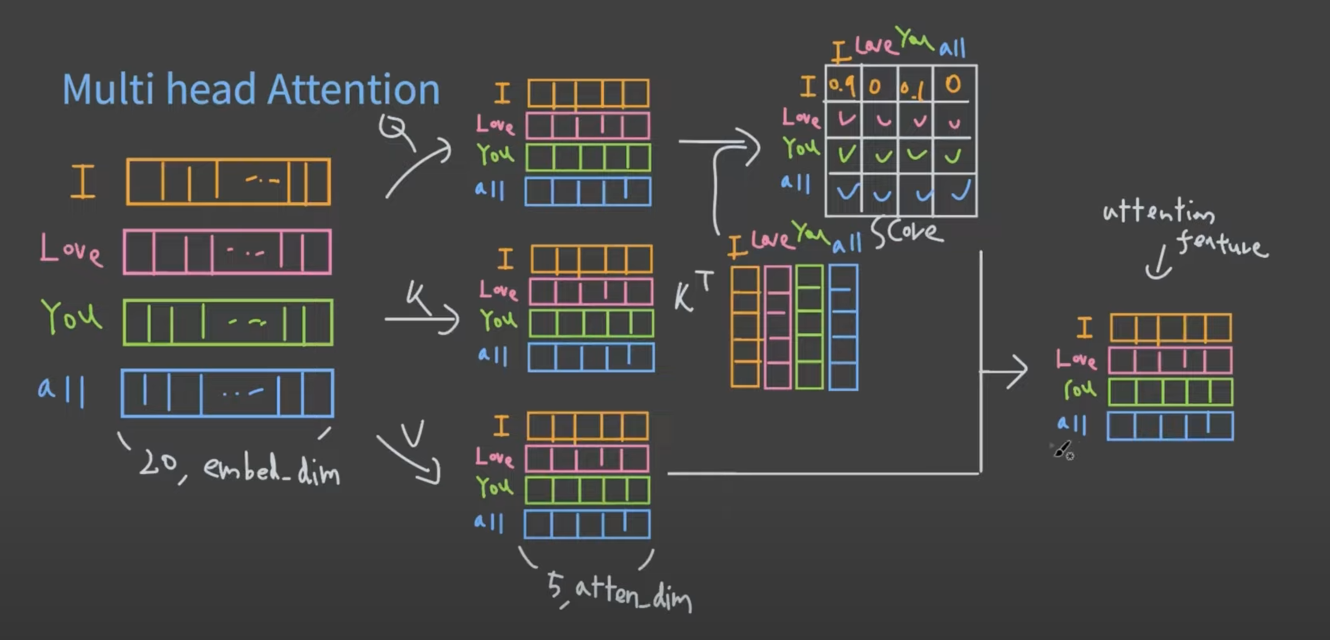 Multi head Attention
I
Love
You
all
20, embed_dim
Q
K
V
I
Love
You
all
I
Love
You
all
I
Love
You
all
5, atten_dim
I Love You all
I 0.9 0 0.1 0
Love
You
all
Score
K^T
I Love You all
attention
feature
I
Love
You
all